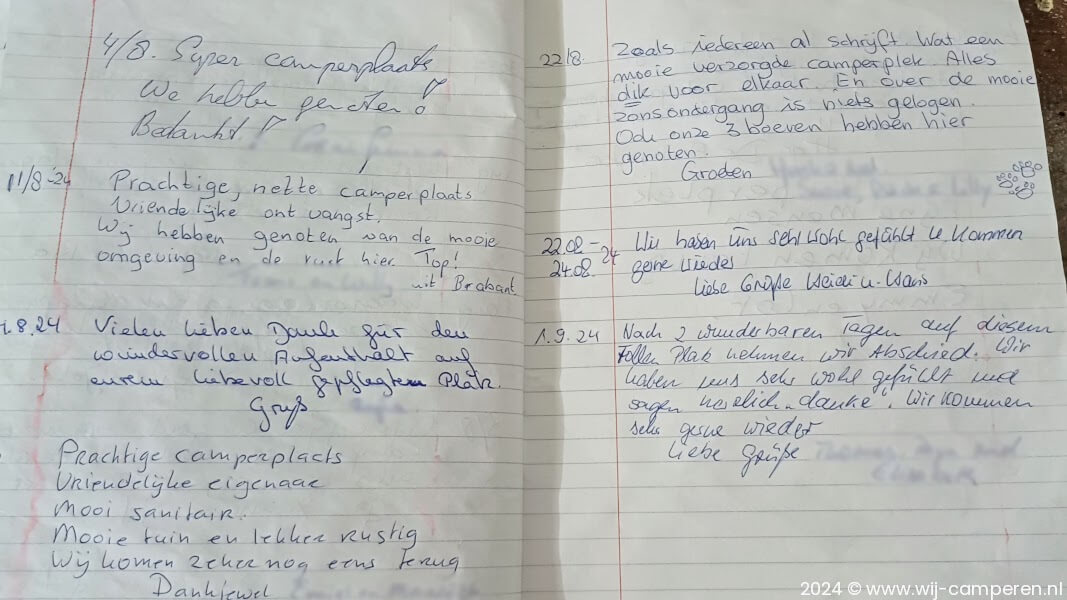 4/8. Super camperplaats
We hebben genoten!
Bedankt!
11/8-24 Prachtige, nette camperplaats
Vriendelijke ontvangst.
Wij hebben genoten van de mooie
omgeving en de rust hier. Top!
uit Brabant
.8.24 Vielen lieben Dank für den
wundervollen Aufenthalt auf
eurem liebevoll gepflegtem Platz.
Gruß
Prachtige camperplaats
Vriendelijke eigenaar
Mooi sanitair.
Mooie tuin en lekker rustig
Wij komen zeker nog eens terug
Dankjewel
22/8 Zoals iedereen al schrijft. Wat een
mooie verzorgde camperplek. Alles
dik voor elkaar. En over de mooie
zonsondergang is niets gelogen.
Ook onze 3 boeven hebben hier
genoten.
Groeten
22.08 - Wir haben uns sehr wohl gefühlt u. kommen
24.08. 24 gerne wieder
Liebe Grüße Heidi u. Hans
1.9.24 Nach 2 wunderbaren Tagen auf diesem
tollen Platz nehmen wir Abschied. Wir
haben uns sehr wohl gefühlt und
sagen herzlich „danke“. Wir kommen
sehr gerne wieder
Liebe Grüße
2024 © www.wij-camperen.nl